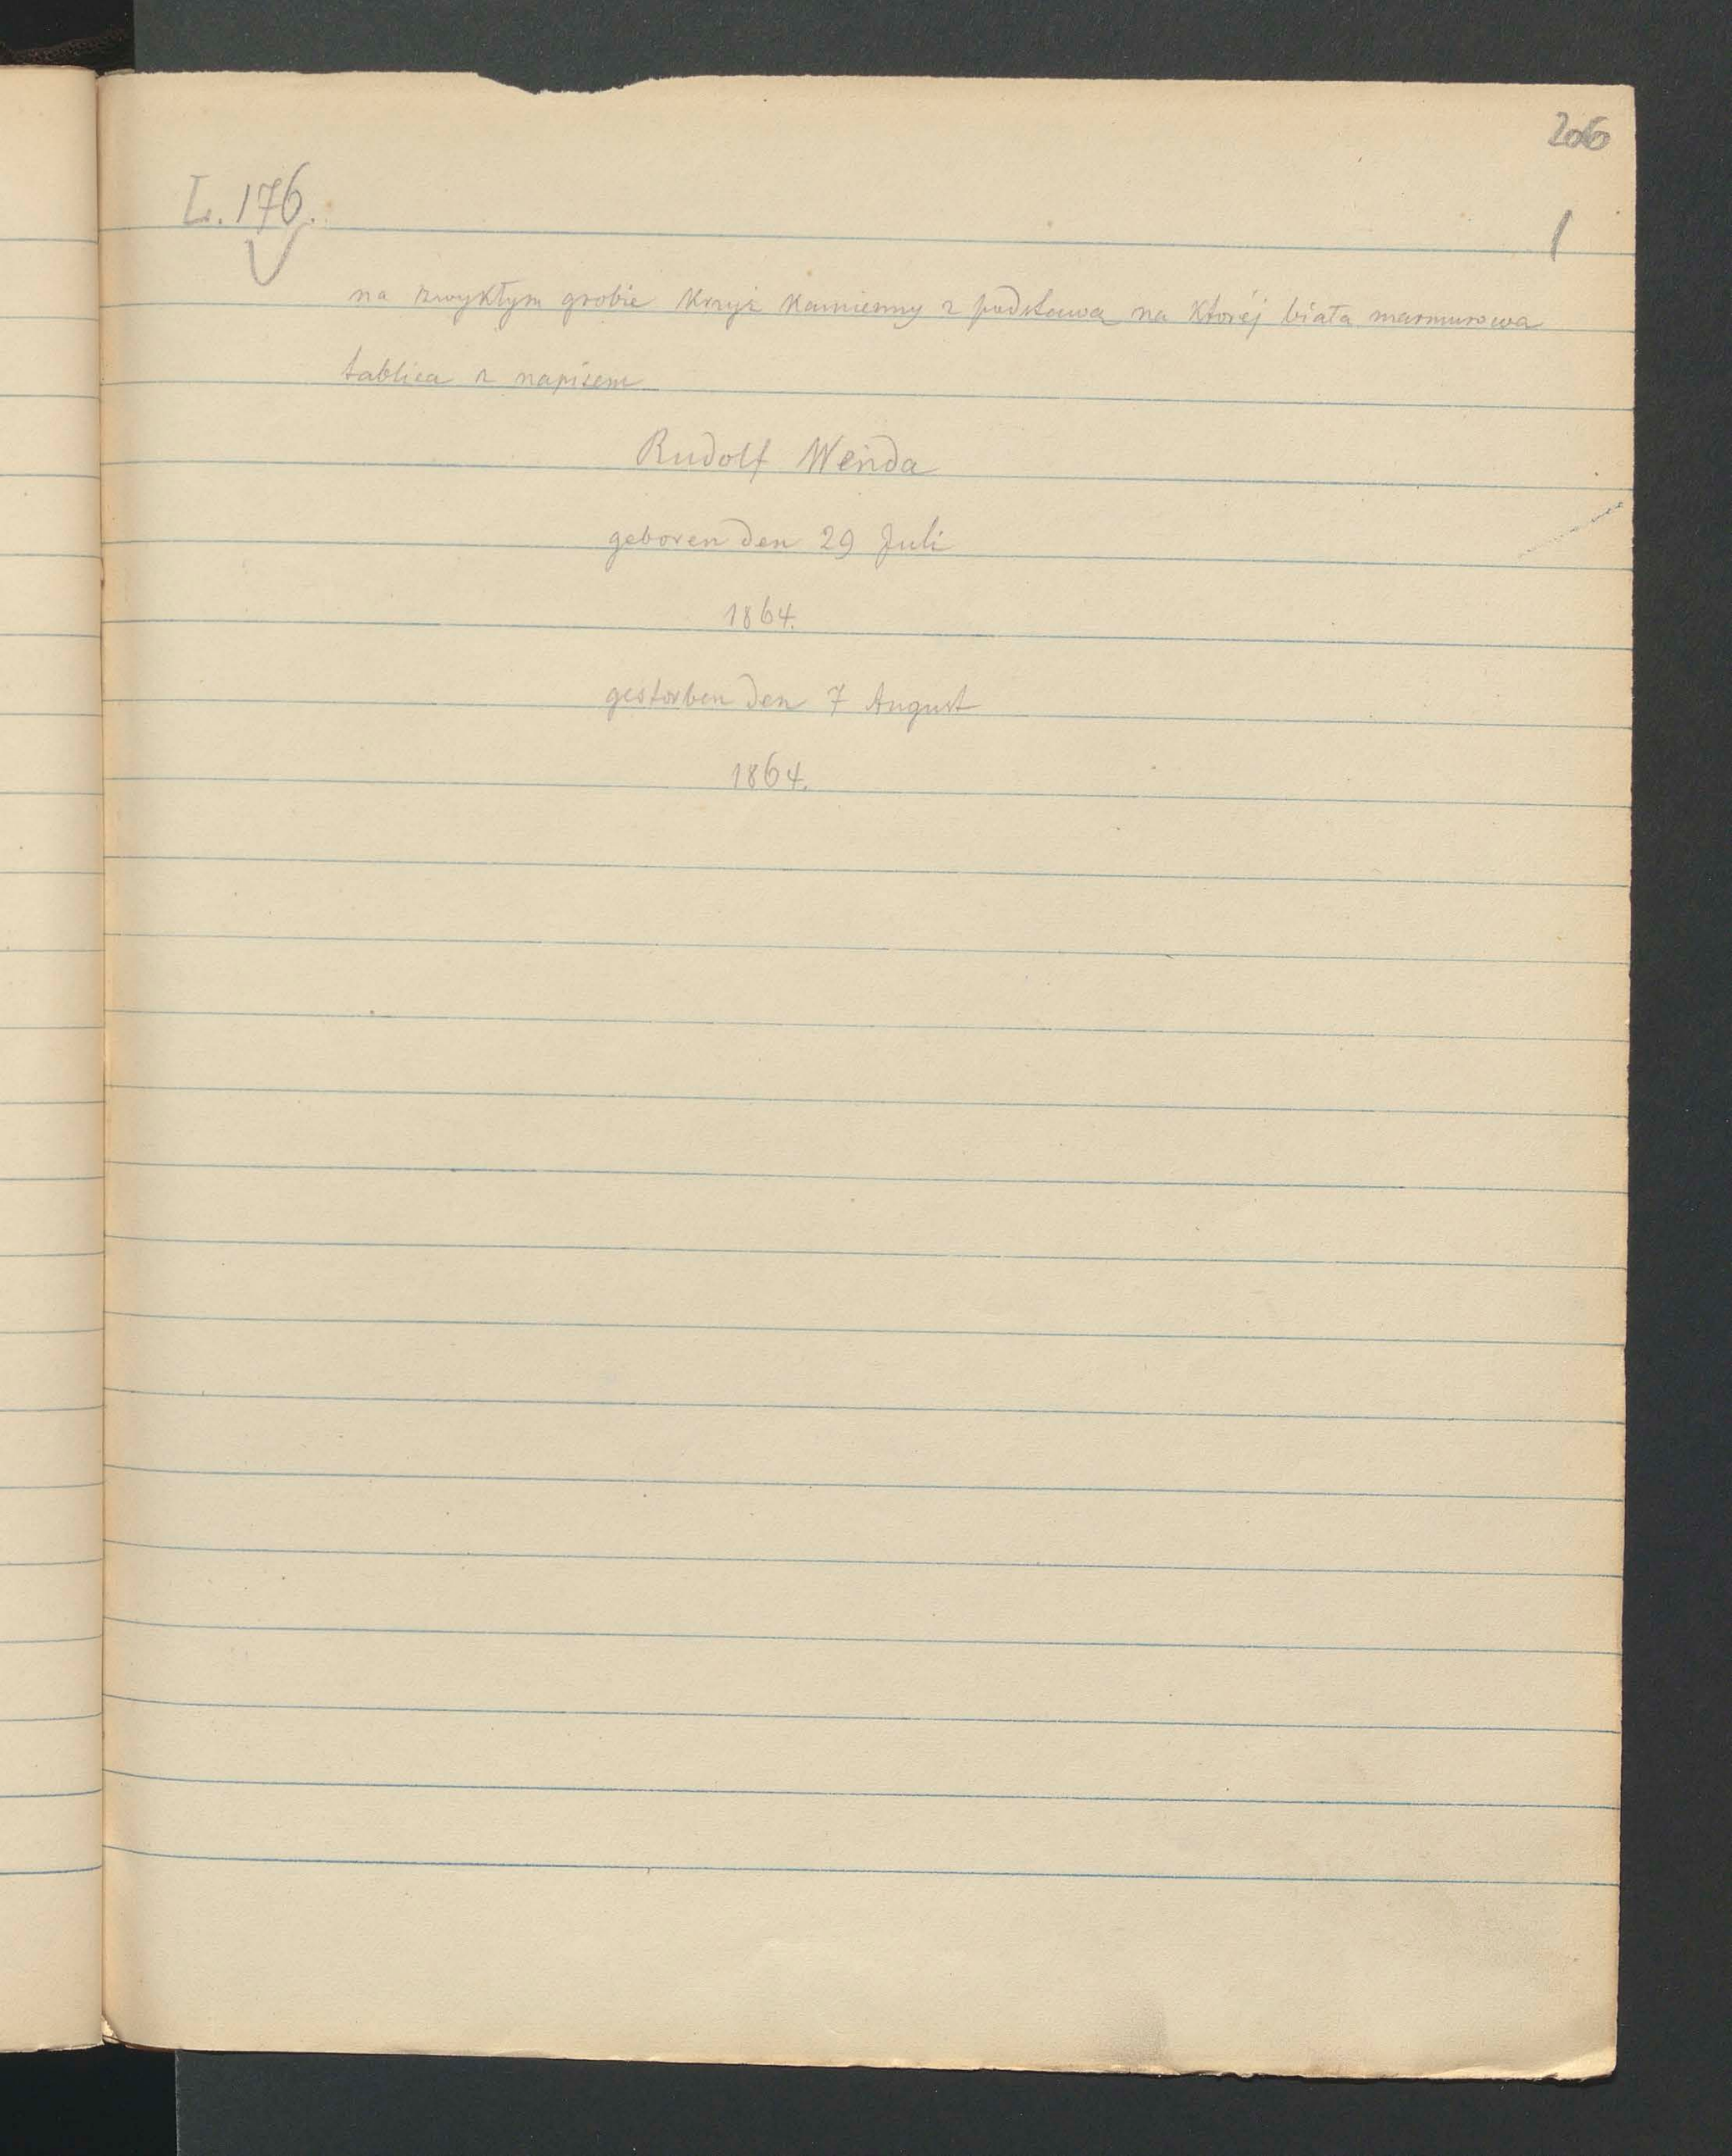 206
L. 176.
1
na zwykłym grobie krzyż kamienny z podstawą na której biała marmurowa
tablica z napisem
Rudolf Wenda
geboren den 29 Juli
1864.
gestorben den 7 August
1864.